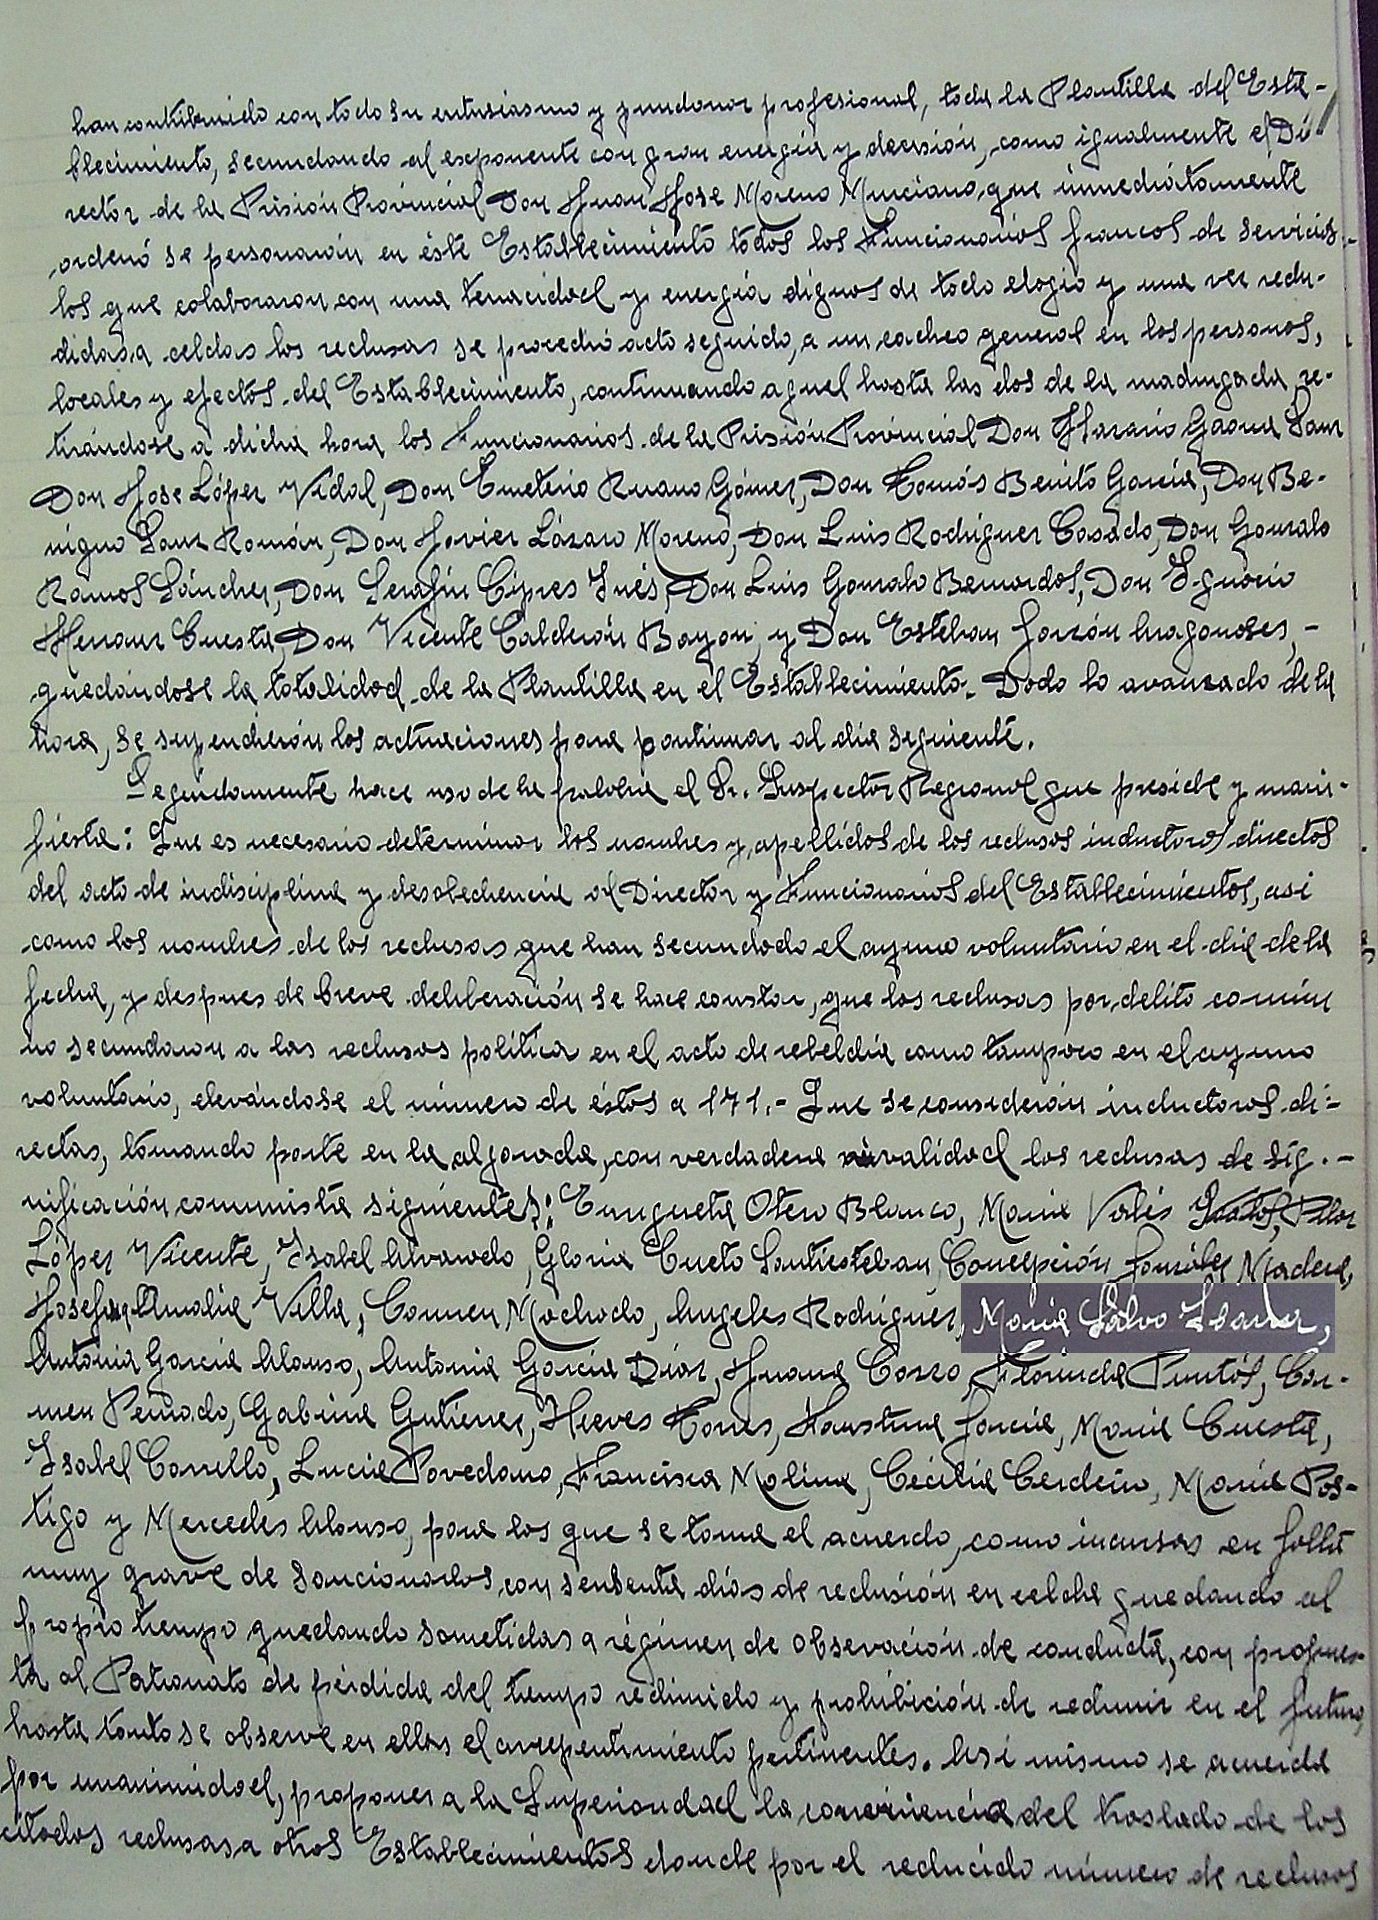 han contribuido con todo su entusiasmo y pundonor profesional, toda la Plantilla del Esta-
blecimiento, secundando al exponente con gran energia y decisión, como igualmente el Di
rector de la Prisión Provincial Don Juan Jose Moreno Munciano, que inmediatamente
ordenó se personarán en éste Establecimiento todos los Funcionarios francos de servicios.-
los que colaboraron con una tenacidad y energia dignos de todo elogio y una vez redu-
didas a celdas las reclusas se procedió acto seguido, a un cacheo general en las personas,
locales y efectos del Establecimiento, continuando aquel hasta las dos de la madrugada, re-
tirándose a dicha hora los Funcionarios de la Prisión Provincial Don Gaona Sanz
Don Jose López Vidal, Don Emeterio Ruano Gómez, Don Tomás Benito Garcia, Don Be-
nigno Sanz Román, Don Javier Lázaro Moreno, Don Luis Rodriguez Casado, Don Gonzalo
Ramos Sánchez, Don Serafin Cipres Inés, Don Luis Gonzalo Bernardos, Don Ignacio
Herranz Cuesta, Don Vicente Calderón Bayon, y Don Esteban Garzón Aragoneses,-
quedándose la totalidad de la Plantilla en el Establecimiento.- Dado lo avanzado de la
hora, se suspendierón las actuaciones para continuar al dia seguiente.
Seguidamente hace uso de la palabra el Sr. Inspector Regional que preside y mani-
fiesta: Que es necesario determinar los nombres y apellidos de las reclusas inductoras directas
del acto de indisciplina y desobediencia al Director y Funcionarios del Establecimientos, asi
como los nombres de las reclusas que han secundado el ayuno voluntario en el dia de la
fecha, y despues de breve deliberación se hace constar, que las reclusas por delito común
no secundaron a las reclusas politica en el acto de rebeldia como tampoco en el ayuno
voluntario, elevándose el número de éstas a 171.- Que se considerán inductoras di-
rectas, tomando parte en la algarada, con verdadera rivalidad las reclusas de sig.-
nificación comunista siguientes: Enriqueta Otero Blanco, Maria Valés Pilar
López Vicente, Isabel Alvarado, Gloria Cueto Santiesteban, Concepción González Madera,
Josefina Amalia Villa, Carmen Machado, Angeles Rodriguez, Maria Salvo Ibanez,
Antonia Garcia Alonso, Antonia Garcia Diaz, Juana Corzo, Florinda Puntós, Car-
men Peinado, Gabina Gutierrez, Nieves Torres, Faustina Garcia, Maria Cuesta,
Isabel Carrillo, Lucia Povedano, Francisca Molina, Cecilia Cerdeño, Maria Pos-
tigo y Mercedes Alonso, para las que se toma el acuerdo, como incursas en falta
muy grave de sancionarlas con sensenta dias de reclusión en celda quedando al
propio tiempo quedando sometidas a régimen de observación de conducta, con propues-
ta al Patronato de pérdida del tiempo redimido y prohibición de redimir en el futuro,
hasta tanto se observe en ellas el arrepentimiento pertinentes. Asi mismo se acuerda
por unanimidad, proponer a la Superioridad la conveniencia del traslado de las
citadas reclusas a otros Establecimientos donde por el reducido número de reclusas